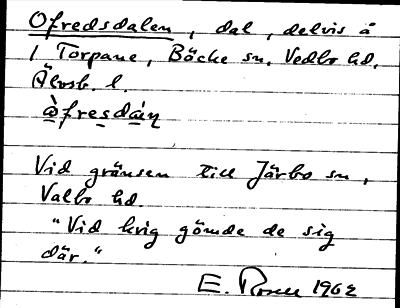 Ofredsdalen, dal, delvis å
1 Torpane, Bäcke sn. Vedbo hd.
Älvsb. l.
àfresdáiŋ
Vid gränsen till Järbo sn,
Valbo hd.
"Vid krig gömde de sig
där."
E. Rosell 1962